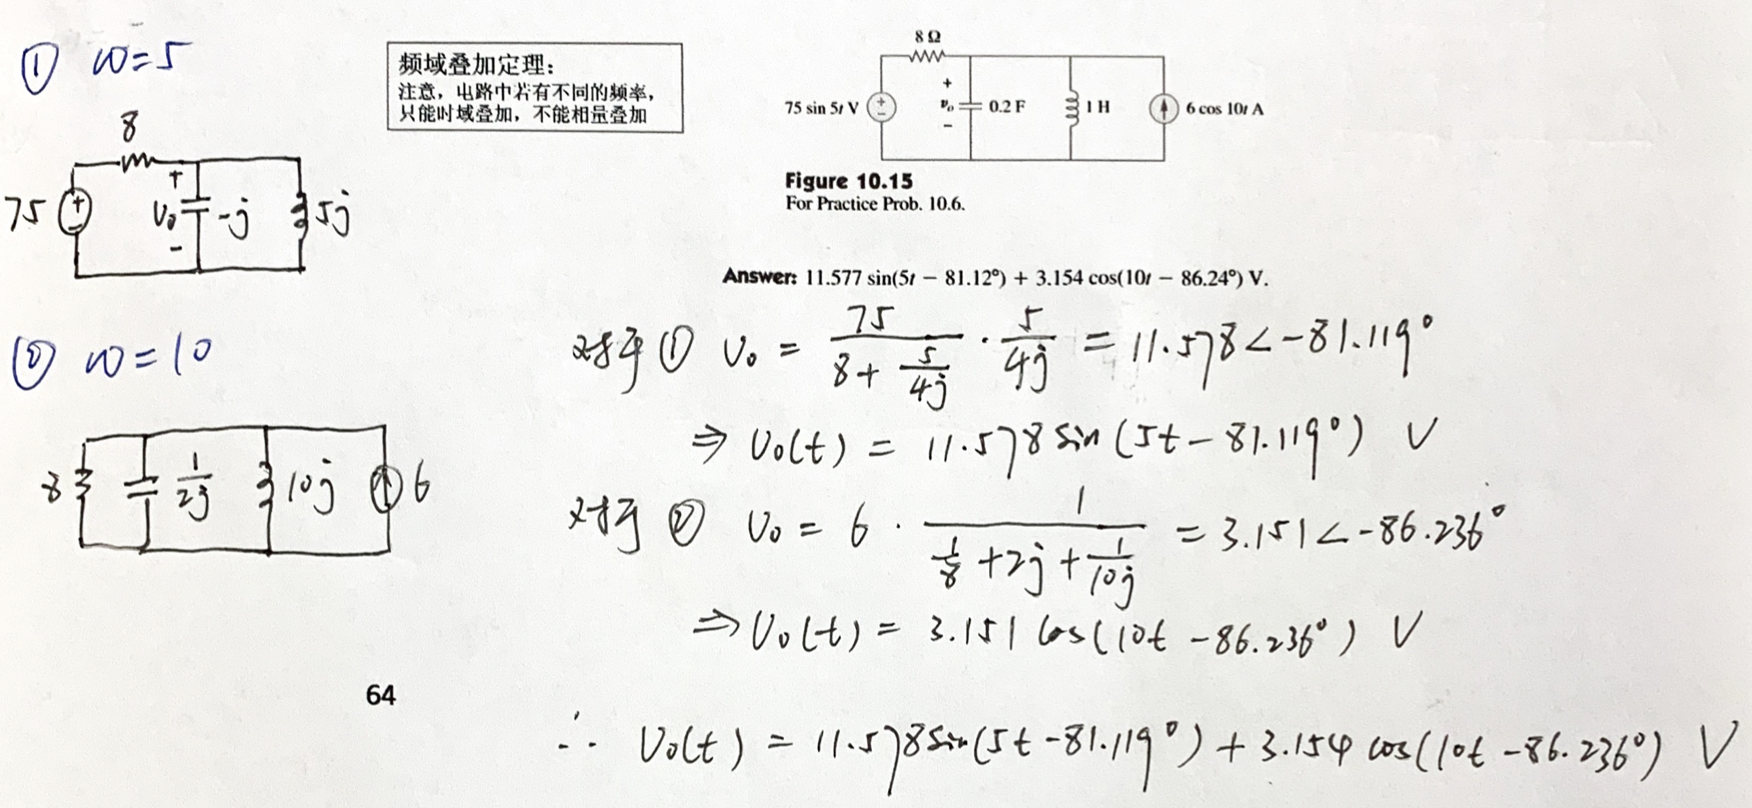 ① ω=5
8
75
+
-
+
V₀
-
-j
5j
频域叠加定理：
注意，电路中若有不同的频率，
只能时域叠加，不能相量叠加
8 Ω
75 sin 5t V
+
-
+
vo
-
0.2 F
1 H
6 cos 10t A
Figure 10.15
For Practice Prob. 10.6.
Answer: 11.577 sin(5t − 81.12°) + 3.154 cos(10t − 86.24°) V.
② ω=10
8
1/2j
10j
6
对于① V₀ = 75/(8+5/4j) · 5/4j = 11.578∠-81.119°
⇒ V₀(t) = 11.578 sin(5t-81.119°) V
对于② V₀ = 6 · 1/(1/8+2j+1/10j) = 3.151∠-86.236°
⇒ V₀(t) = 3.151 cos(10t-86.236°) V
64
∴ V₀(t) = 11.578 sin(5t-81.119°) + 3.154 cos(10t-86.236°) V